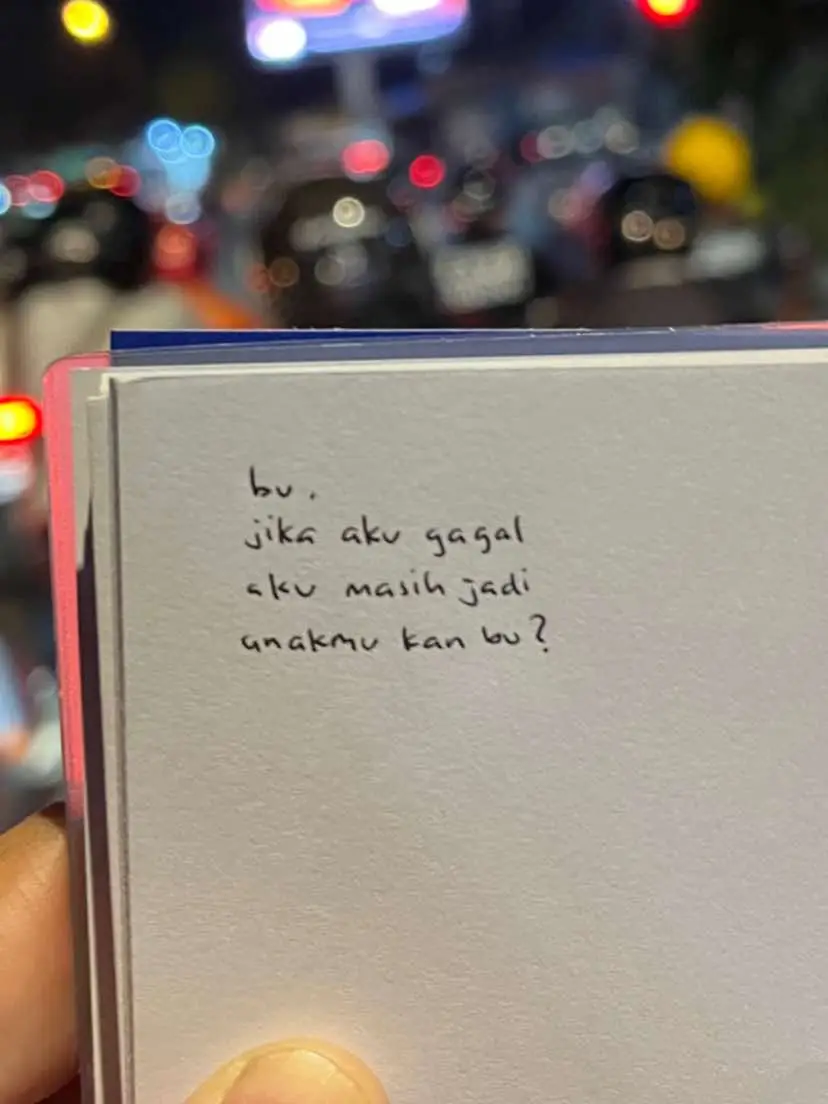 bu.
jika aku gagal
aku masih jadi
anakmu kan bu?